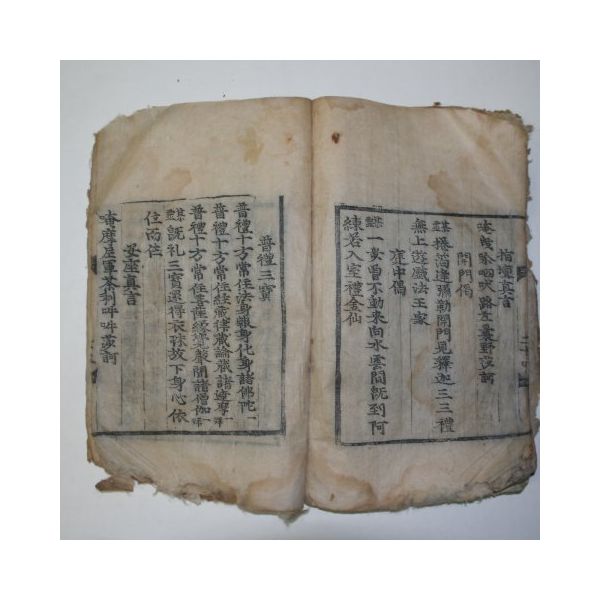 指壇真言
唵曳 呬吠路左曩野莎訶
開門偈
諜捲箔逢彌勒開門見釋迦三三禮
無上遊戲法王家
庭中偈
諜一步曾不動來向水雲間旣到阿
練若入室禮金仙
普禮三寶
普禮十方常住法身報身化身諸佛陀一拜
普禮十方常住經藏律藏論藏諸達摩一拜
普禮十方常住菩薩緣覺聲聞諸僧伽一拜
諜旣礼三寶還得衣珠放下身心依
位而住
安座真言
唵摩尼軍茶利吽吽莎訶